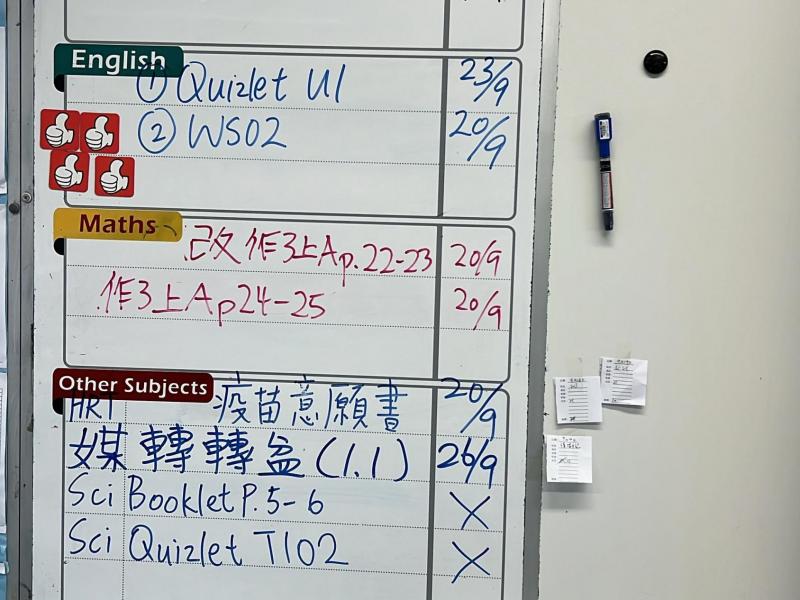 English
① Quizlet U1 23/9
② WS02 20/9
Maths
改作3上Ap.22-23 20/9
作3上Ap24-25 20/9
Other Subjects
HRT 疫苗意願書 20/9
媒 轉轉盆(1.1) 26/9
Sci Booklet P.5-6 X
Sci Quizlet T102 X